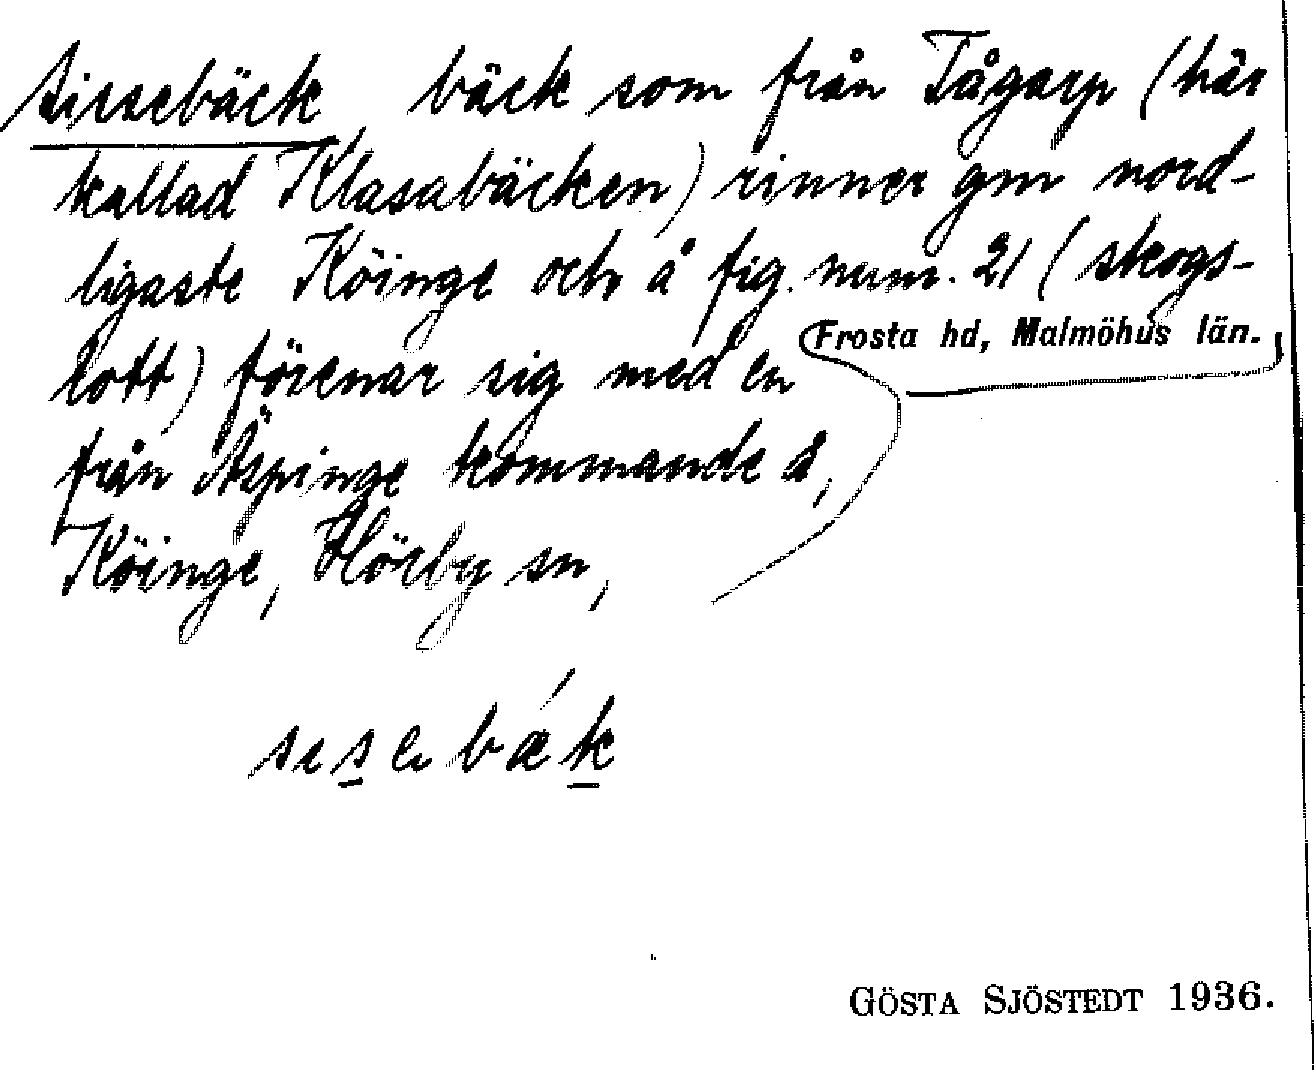 Sissebäck bäck som från Tågarp (här
kallad Klasabäcken) rinner gm nord-
ligaste Köinge och å fig. num. 21 (skogs-
lott) förenar sig med en
från Äspinge kommande å,
Köinge, Hörby sn,
Frosta hd, Malmöhus län.
sɪsebæ´k
GÖSTA SJÖSTEDT 1936.